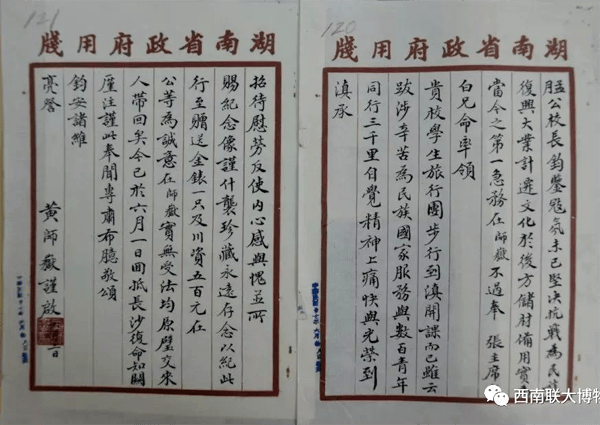 120
湖南省政府用牋
孟公校長鈞鑒寇氛未已堅決抗戰為民族
復興大業計遷文化於後方儲材備用實
當今之第一急務在師嶽不過奉 張主席
白兄命率領
貴校學生旅行團步行到滇開課而已雖云
跋涉辛苦為民族國家服務與數百青年
同行三千里自覺精神上痛快與光榮到
滇承
121
湖南省政府用牋
招待慰勞反使内心感與愧並所
賜紀念像謹什襲珍藏永遠存念以紀此
行至贈送金錶一只及川資五百元在
公等為誠意在師嶽實無受法均原璧交米
人帶回矣今已於六月一日回抵長沙復命知關
厪注謹此奉聞專肅布臆敬頌
鈞安諸維
亮詧
黃師嶽謹啟
日
西南联大博物